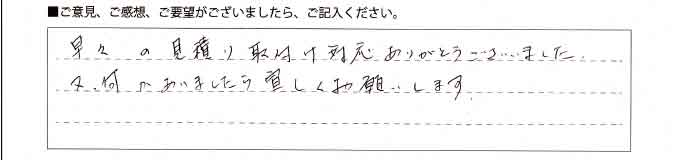 ■ご意見、ご感想、ご要望がございましたら、ご記入ください。
早々の見積り取付け対応ありがとうございました.
又、何かありましたら宜しくお願いします.